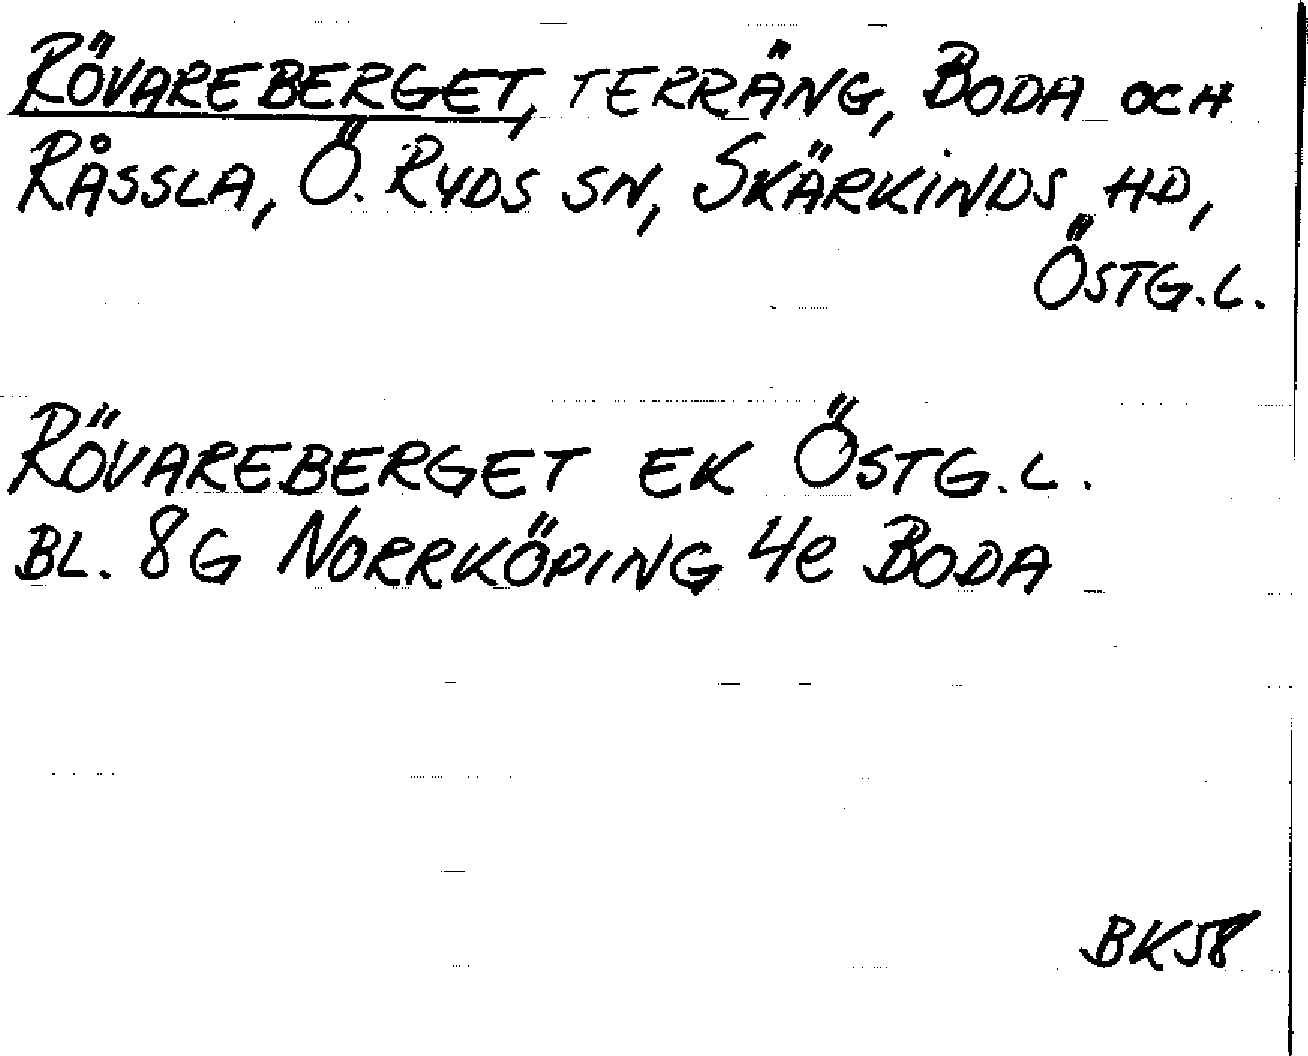 RÖVAREBERGET, TERRÄNG, BODA OCH
RÅSSLA, Ö. RYDS SN, SKÄRKINDS HD,
ÖSTG.L.
RÖVAREBERGET EK ÖSTG.L.
BL. 8G NORRKÖPING 4e BODA
BK58